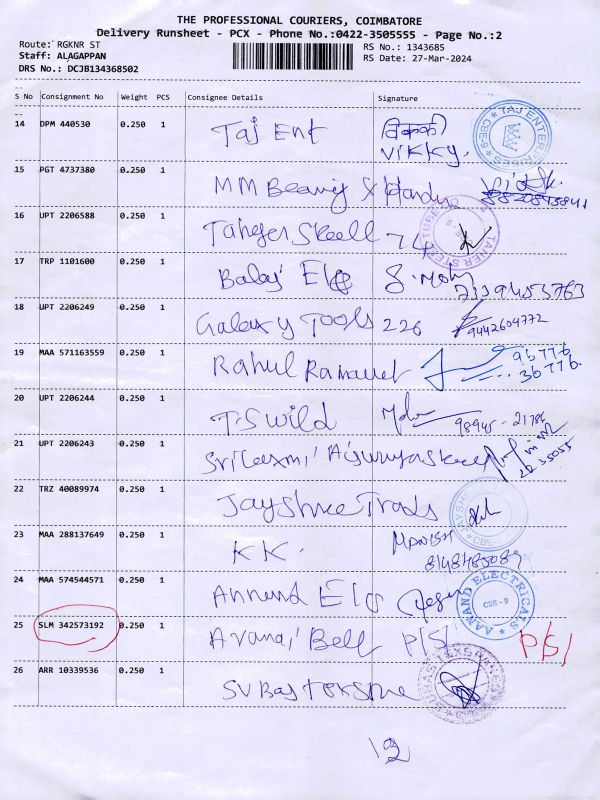 THE PROFESSIONAL COURIERS, COIMBATORE
Delivery Runsheet - PCX - Phone No.:0422-3505555 - Page No.:2
Route: RGKNR ST
RS No.: 1343685
Staff: ALAGAPPAN
RS Date: 27-Mar-2024
DRS No.: DCJB134368502
S No Consignment No Weight PCS Consignee Details Signature
14 DPM 440530 0.250 1 Taj Ent विक्की
Vikky.
TAJ ENTER
15 PGT 4737380 0.250 1 MM Bearing &
16 UPT 2206588 0.250 1 Taheer Steell 74
TAHER STEEL TUBE
17 TRP 1101600 0.250 1 Balaj Ele
18 UPT 2206249 0.250 1 Galaxy Tools 226
9442604772
19 MAA 571163559 0.250 1 Rahul
96776
36776.
20 UPT 2206244 0.250 1 T.S Wild
98945-21786
21 UPT 2206243 0.250 1 Sri Laxmi
22 TRZ 40089974 0.250 1 Jayshree Trads
JAYSHR
CBE
23 MAA 288137649 0.250 1 KK. MANISH
8148483089
24 MAA 574544571 0.250 1 Annend Ele
AANAND ELECTRICALS
CBE - 9
25 SLM 342573192 0.250 1 Avanai Bell P/S/ P/S/
26 ARR 10339536 0.250 1
12